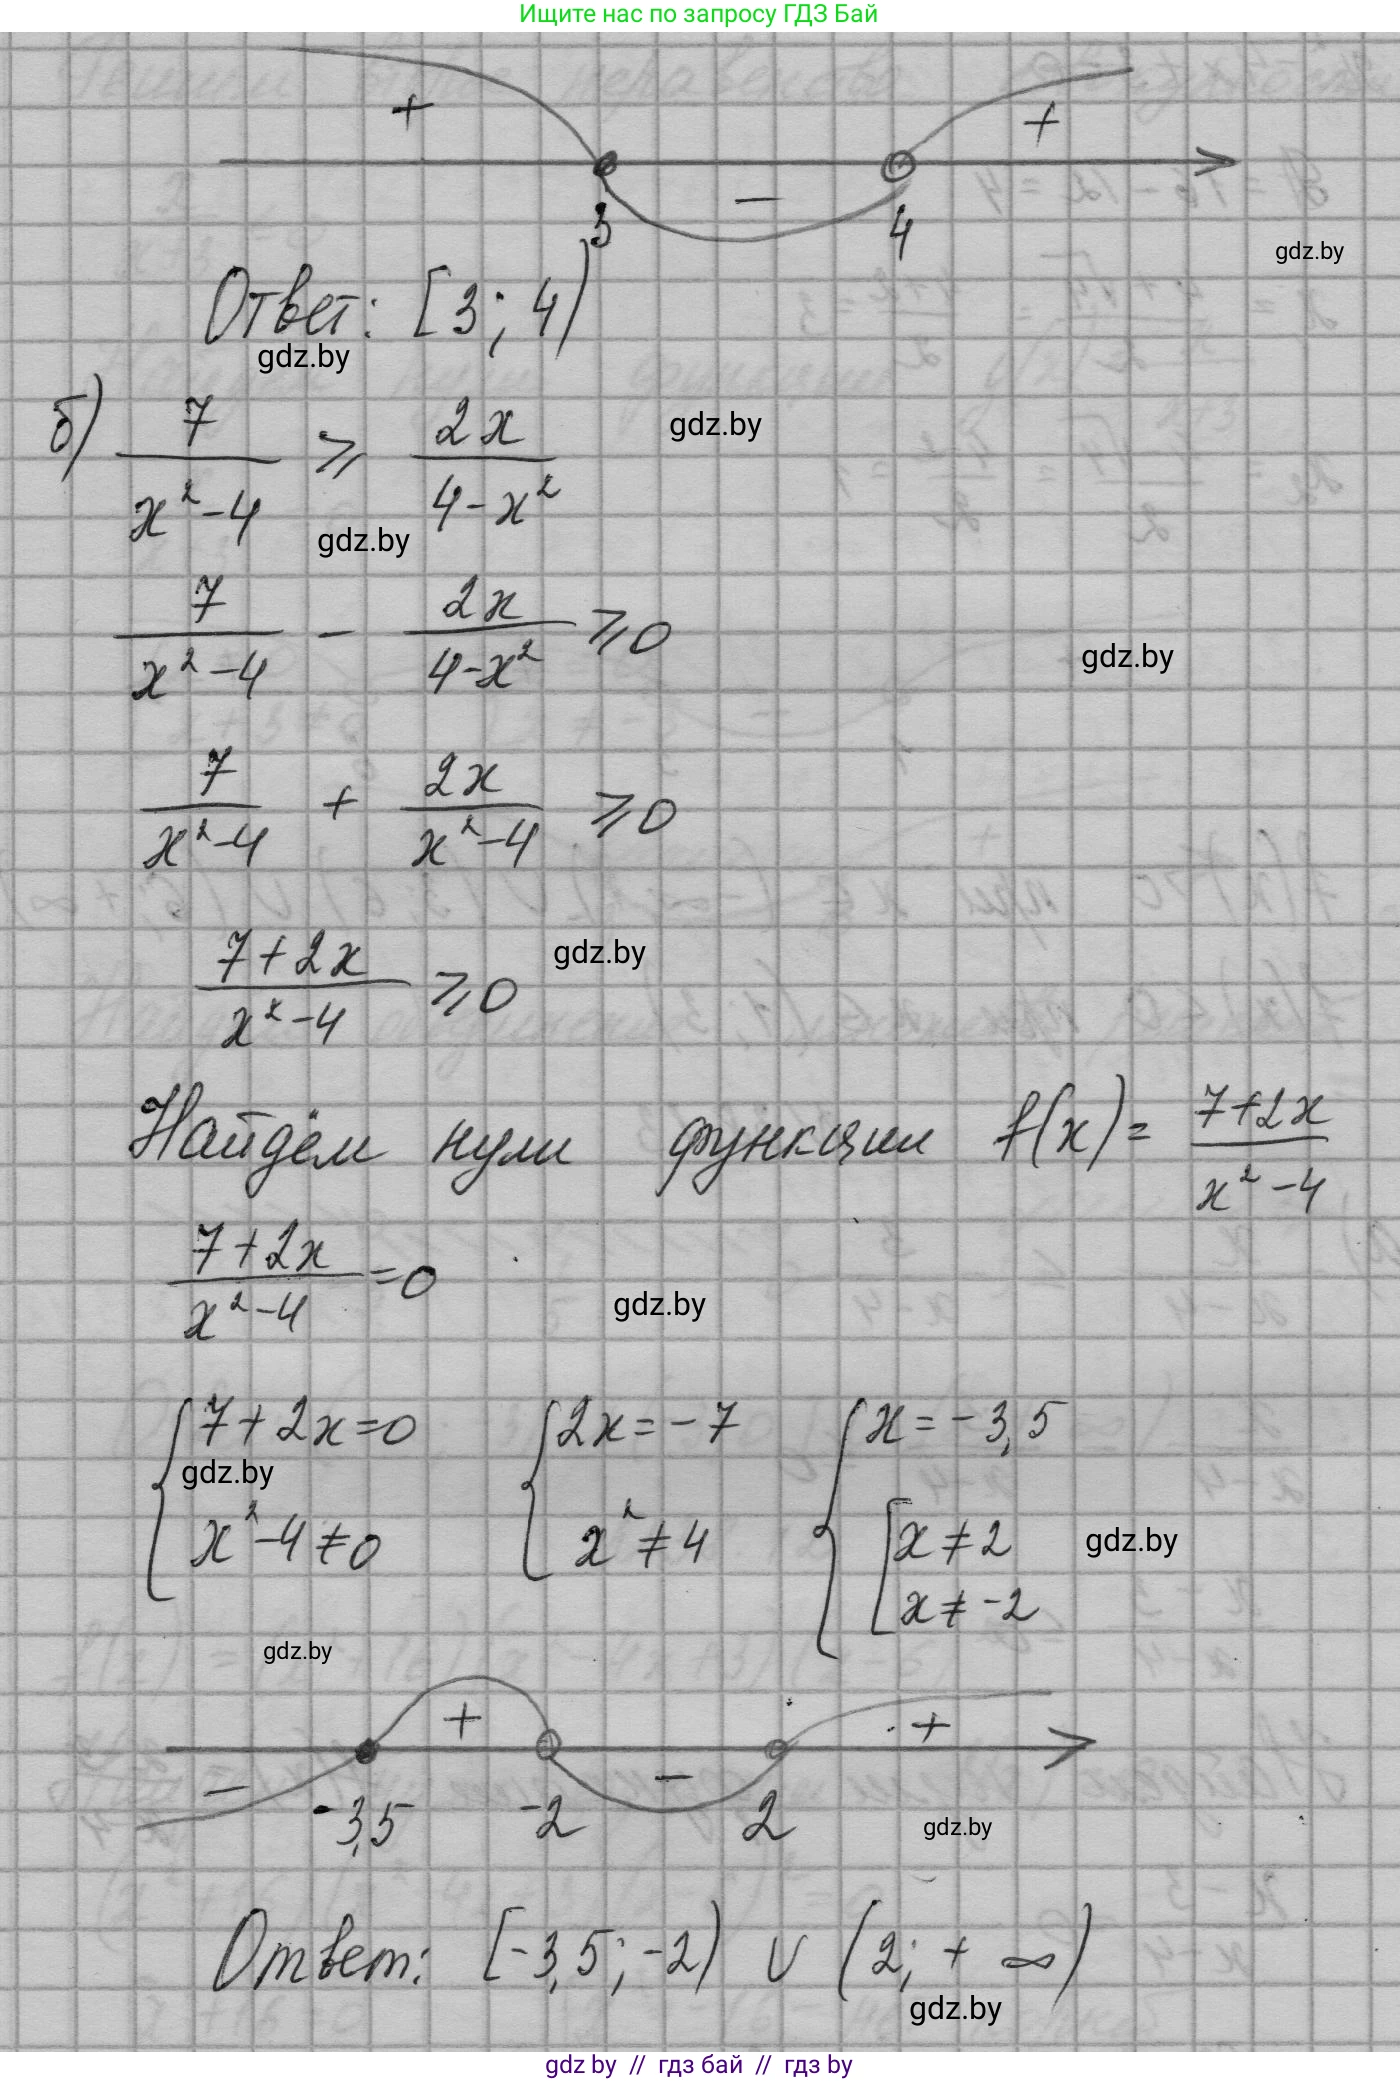 Ищите нас по запросу ГДЗ Бай
+ − +
3 4
gdz.by
Ответ: [3; 4)
gdz.by
б) 7/(x² − 4) ⩾ 2x/(4 − x²)
gdz.by
gdz.by
7/(x² − 4) − 2x/(4 − x²) ⩾ 0
gdz.by
7/(x² − 4) + 2x/(x² − 4) ⩾ 0
(7 + 2x)/(x² − 4) ⩾ 0
gdz.by
Найдём нули функции f(x) = (7 + 2x)/(x² − 4)
(7 + 2x)/(x² − 4) = 0
gdz.by
{ 7 + 2x = 0 { 2x = −7 { x = −3,5
gdz.by
x² − 4 ≠ 0 x² ≠ 4 [ x ≠ 2
gdz.by
x ≠ −2
gdz.by
− + − +
−3,5 −2 2
gdz.by
Ответ: [−3,5; −2) ∪ (2; + ∞)
gdz.by
gdz by // гдз бай // гдз by